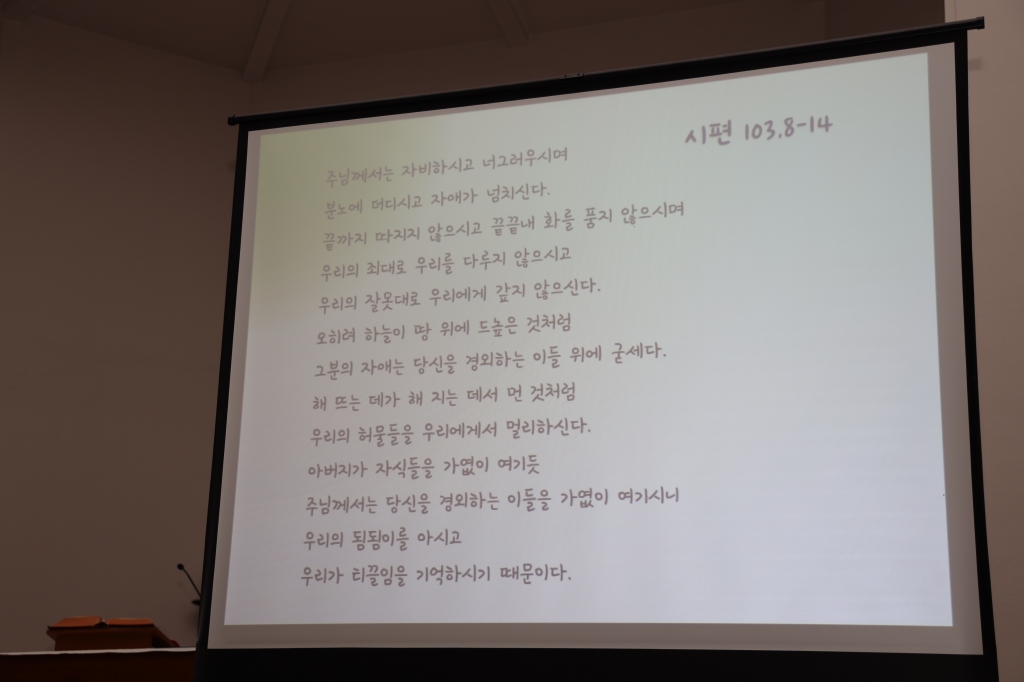 시편 103.8-14
주님께서는 자비하시고 너그러우시며
분노에 더디시고 자애가 넘치신다.
끝까지 따지지 않으시고 끝끝내 화를 품지 않으시며
우리의 죄대로 우리를 다루지 않으시고
우리의 잘못대로 우리에게 갚지 않으신다.
오히려 하늘이 땅 위에 드높은 것처럼
그분의 자애는 당신을 경외하는 이들 위에 굳세다.
해 뜨는 데가 해 지는 데서 먼 것처럼
우리의 허물들을 우리에게서 멀리하신다.
아버지가 자식들을 가엾이 여기듯
주님께서는 당신을 경외하는 이들을 가엾이 여기시니
우리의 됨됨이를 아시고
우리가 티끌임을 기억하시기 때문이다.